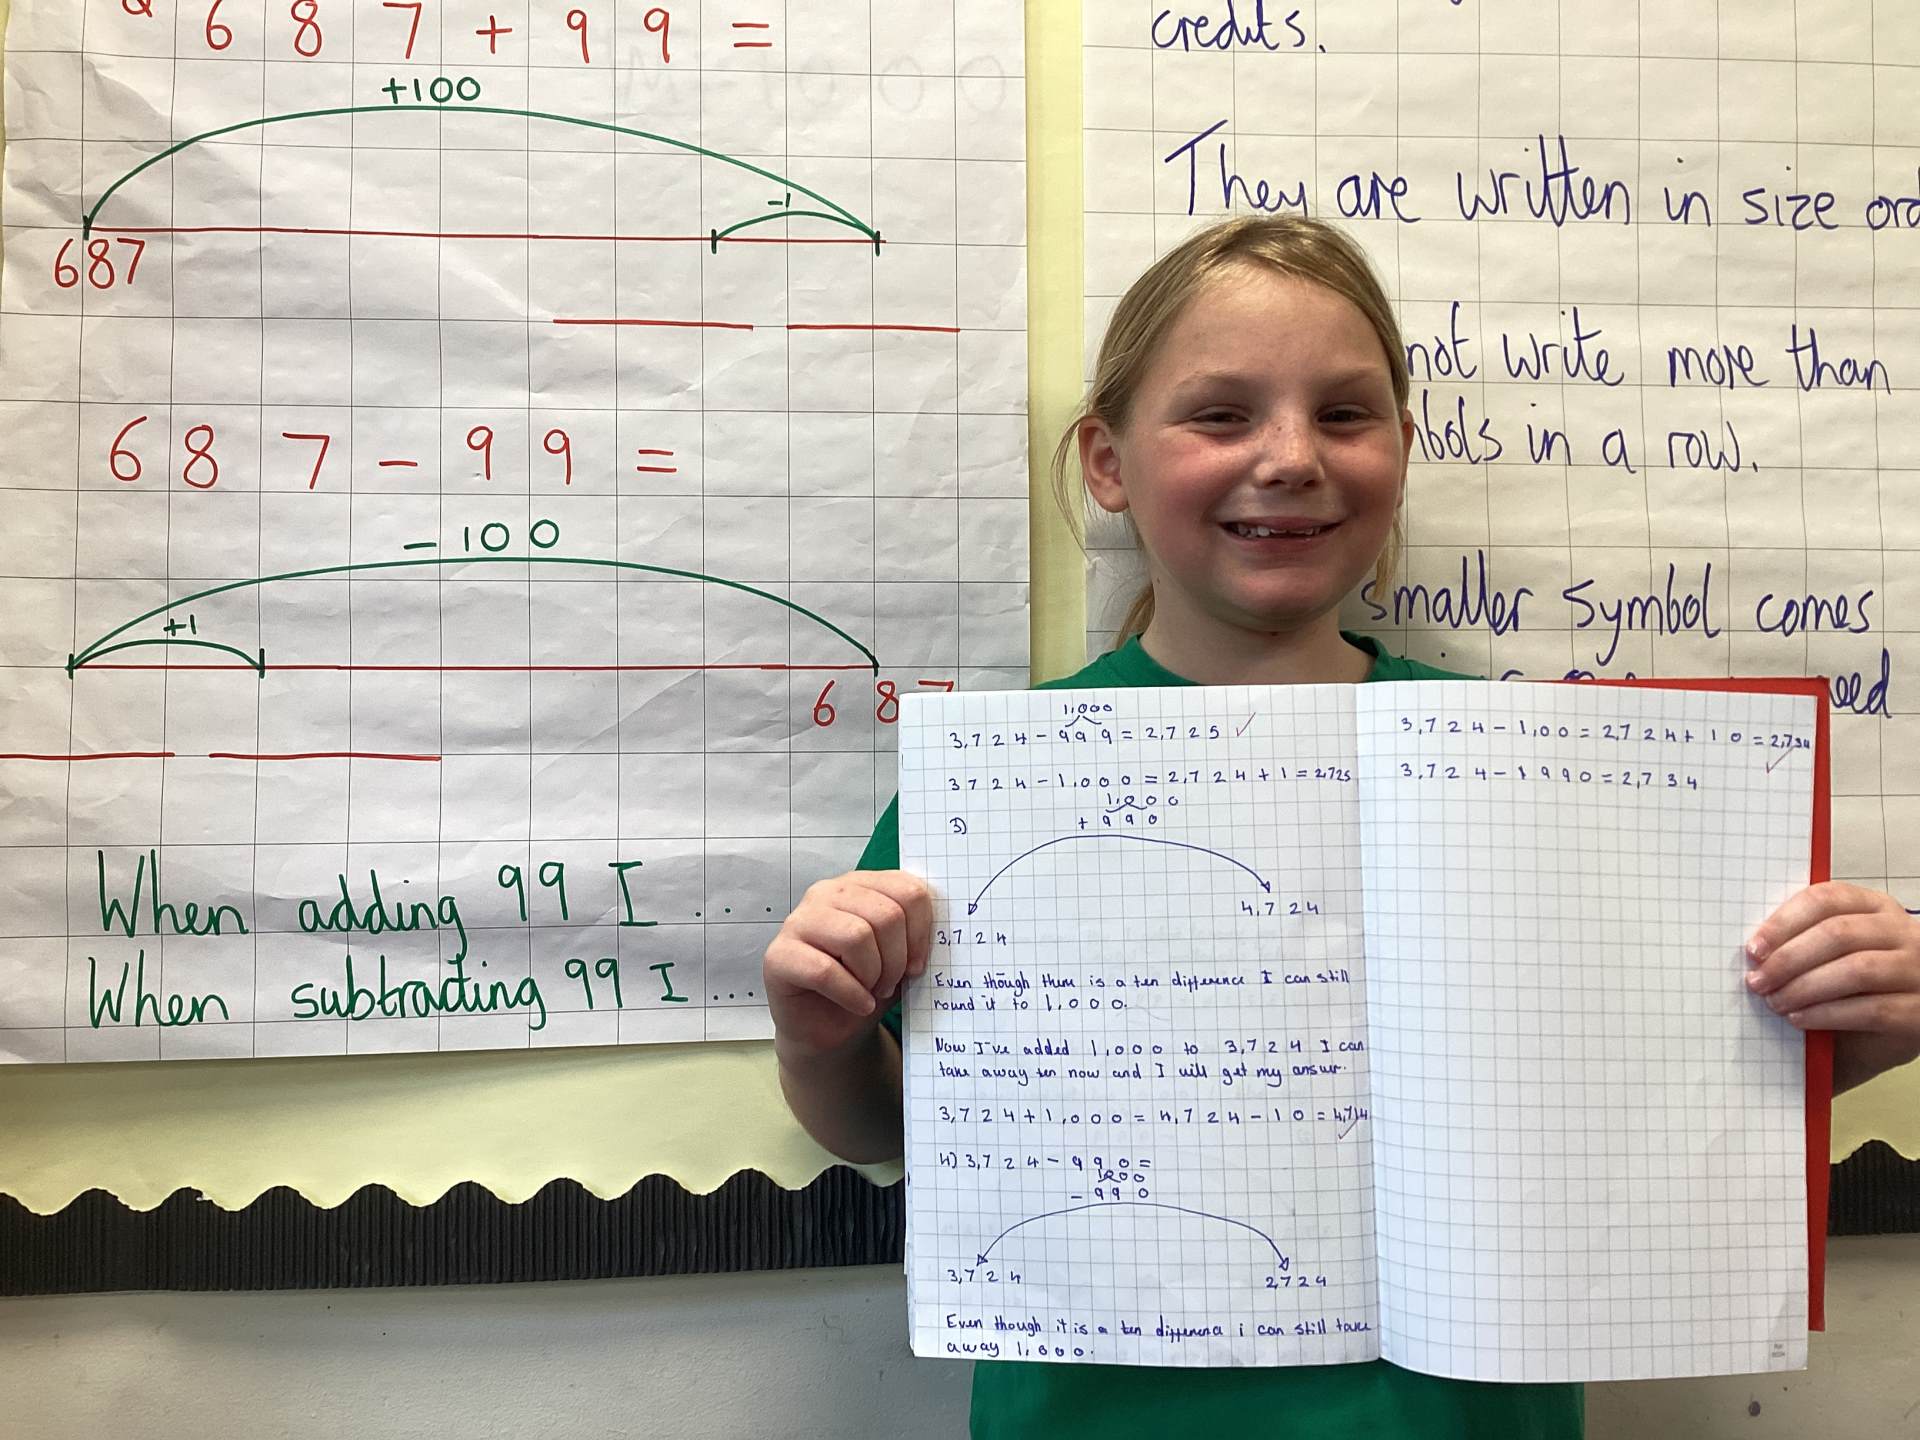 687+99=
+100
-1
687
687-99=
-100
+1
687
When adding 99 I ...
When subtracting 99 I ...
credits.
They are written in size
not write more than
in a row.
smaller symbol comes
1,000
3,724-999=2,725 ✓
3724-1,000=2,724+1=2725
1,000
3) +990
4,724
3,724
Even though there is a ten difference I can still
round it to 1,000.
Now I've added 1,000 to 3,724 I can
take away ten now and I will get my answer.
3,724+1,000=4,724-10=4,714
4) 3,724-990=
1000
-990
3,724
2,724
Even though it is a ten difference i can still take
away 1,000.
3,724-1,00=2,724+10=2,734
3,724-1990=2,734